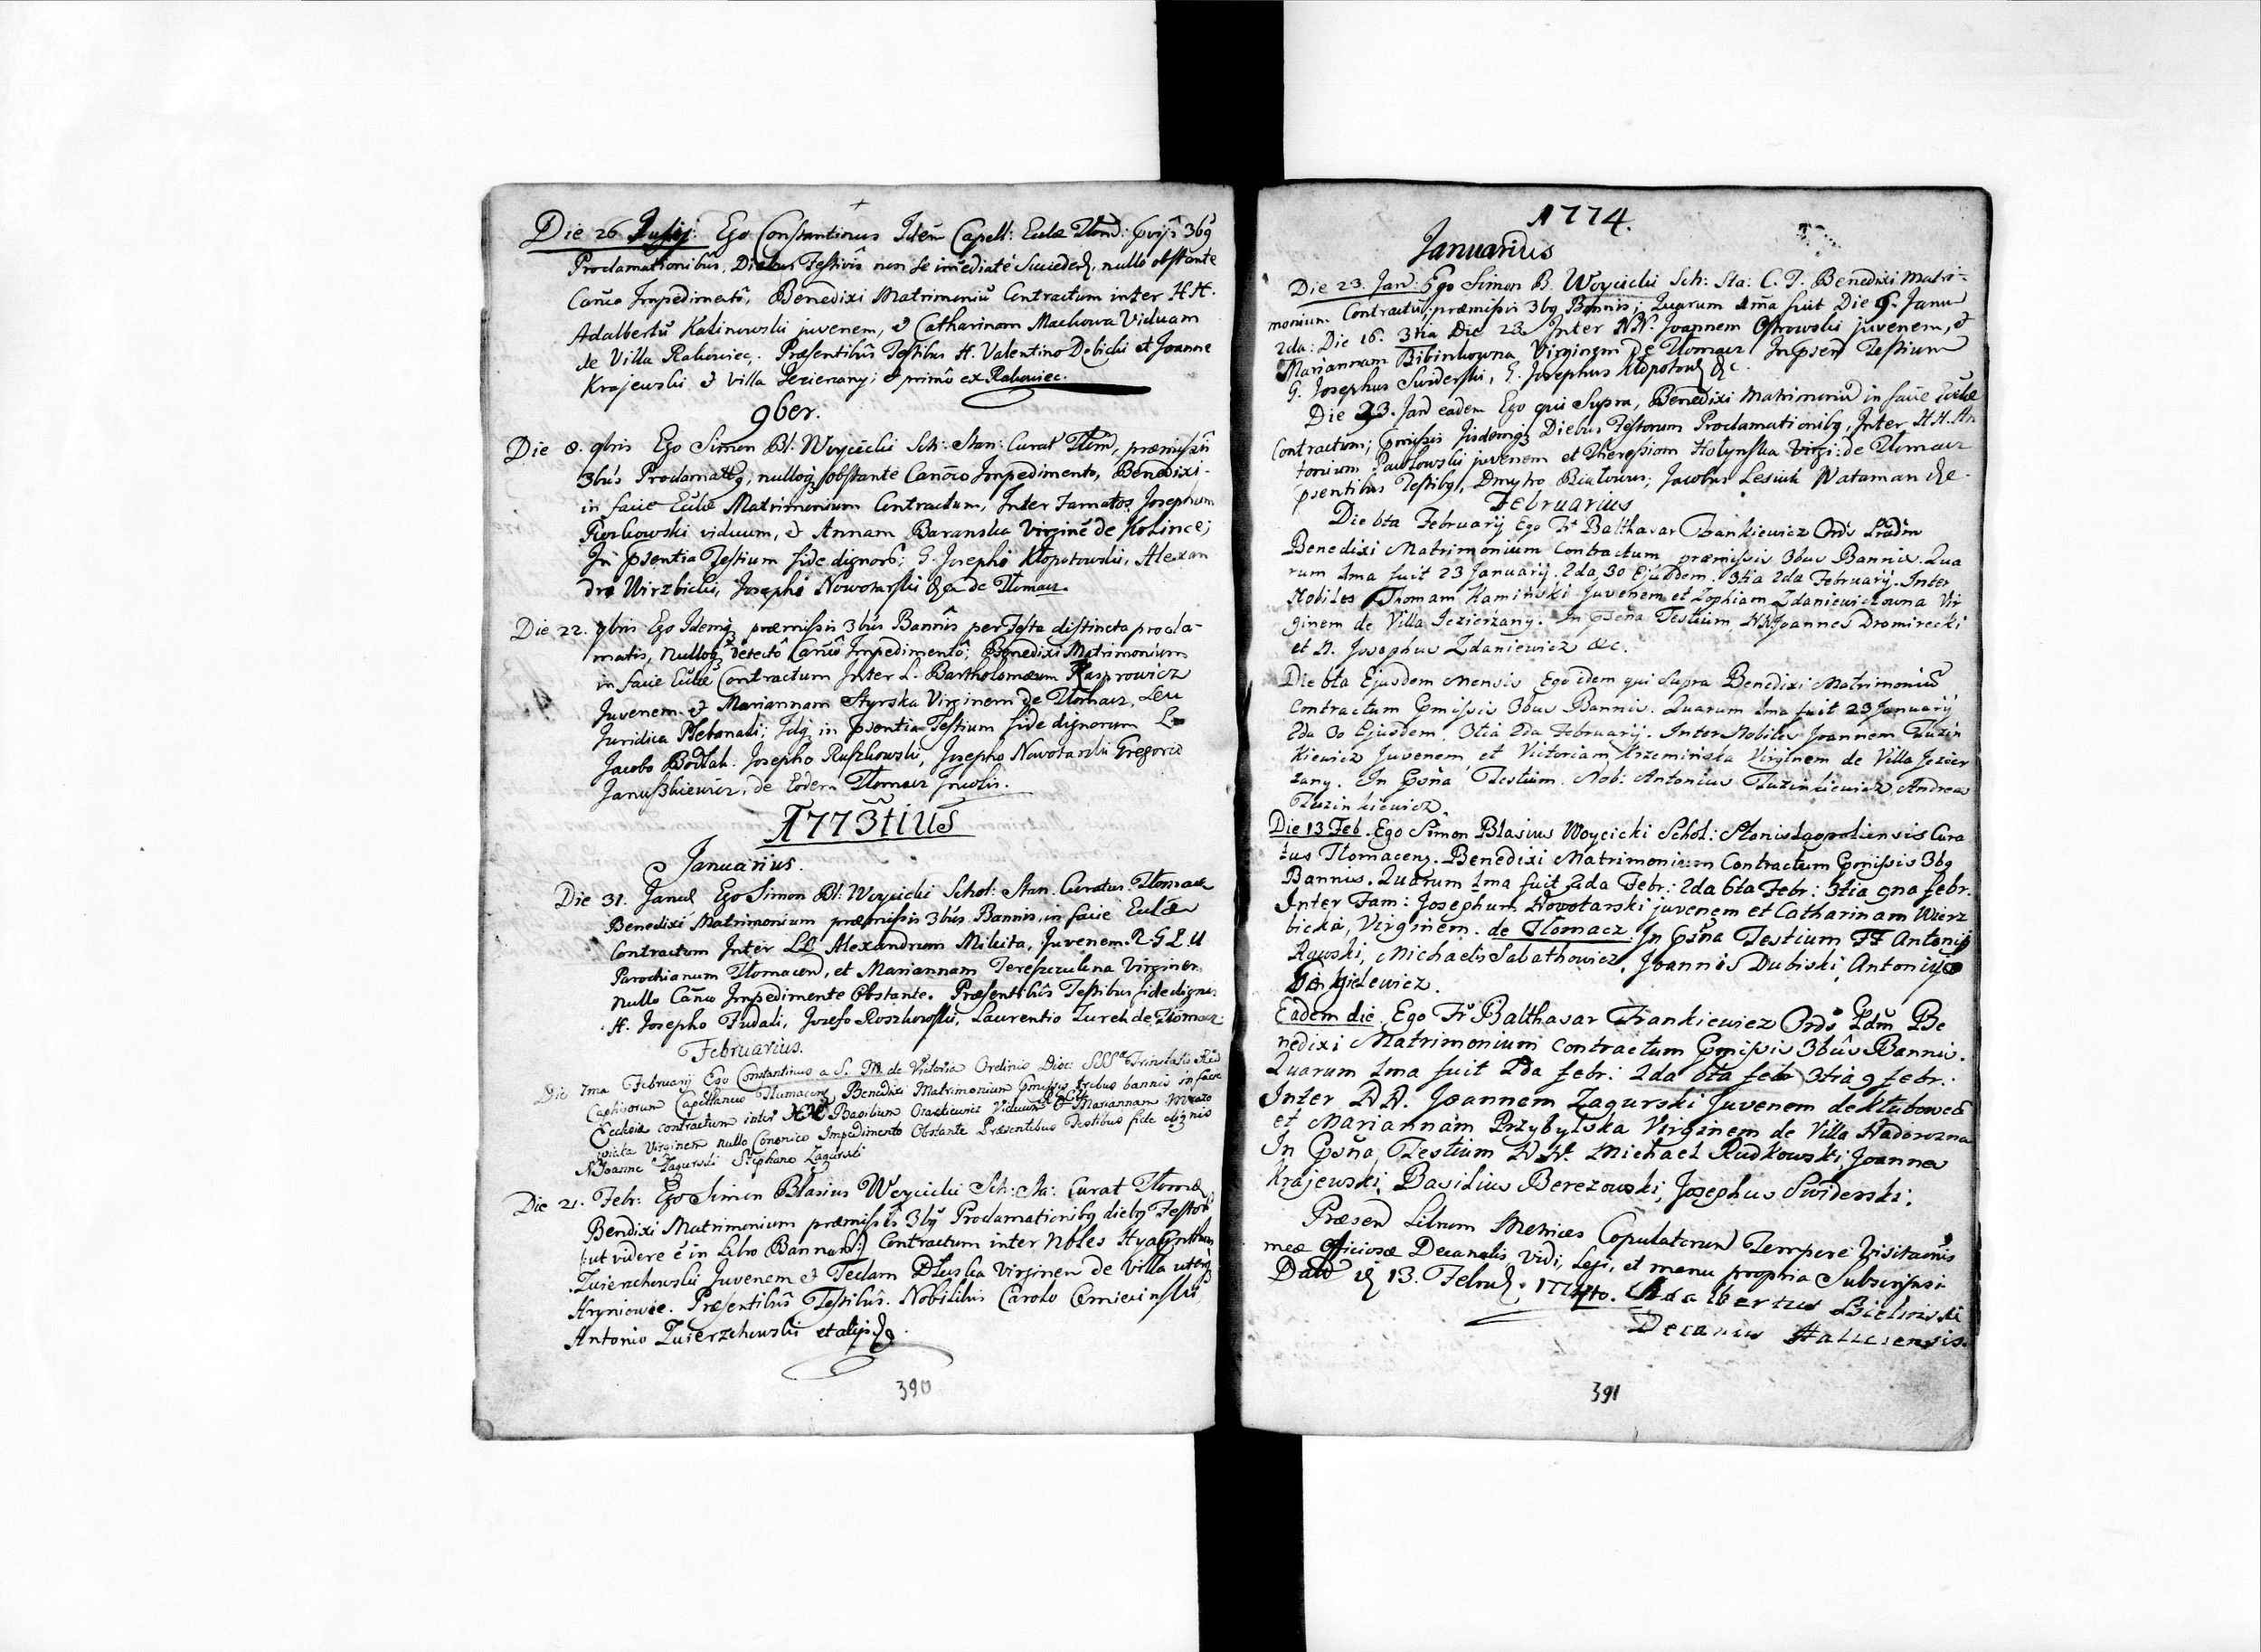 Die 26 Julij: Ego Constantinus Idem Capell: Eulæ Tlom: pviss 3bq
Proclamationibus, Diebus Festivis non se imediate Succeded, nullo obstante
Canco Impedimento, Benedixi Matrimoniu Contractum inter HH.
Adalbertu Kalinowski juvenem, & Catharinam Machowa Viduam
de Villa Rakowiec. Præsentibus Testibus H. Valentino Debicki et Joanne
Krajewski & Villa Jezierzany; & primo ex Rakowiec.
9ber.
Die 8. 9bris Ego Simon Bl. Woycicki Sch: Stan: Curat Tlom, præmissis
3bus Proclamatbq, nulloq obstante Canoco Impedimento, Benedixi
in facie Eulæ Matrimonium Contractum, Inter Famatos Josephum
Roszkowski viduum, & Annam Baranska Virgine de Kolince;
In psentia Testium fide dignor; G. Josepho Klopotowski, Alexan
dro Wirzbicki, Josepho Nowotarski &c de Tlomacz.
Die 22. 9bris Ego Idemq præmissis 3bus Bannis per Festa distincta procla-
matis, nulloq detecto Canco Impedimento; Benedixi Matrimonium
in facie Eulæ Contractum Inter L. Bartholomæum Kasprowicz
Juvenem & Mariannam Styrska Virginem de Tlomacz, seu
Juridica Plebanali; Idq in psentia Testium fide dignorum L
Jacobo Bodlak. Josepho Ruszkowski, Josepho Nowotarski Gregorio
Januszkiewicz, de Eodem Tlomacz Incolis.
1773tius
Januarius.
Die 31. Janu Ego Simon Bl: Woycicki Schol: Stan. Curatus Tlomacz
Benedixi Matrimonium præmissis 3bus Bannis, in facie Eulæ
Contractum Inter LL Alexandrum Mikita, Juvenem R G L U
Parochianum Tlomacen, et Mariannam Tereszczukna Virginem
nullo Canco Impedimento Obstante. Præsentibus Testibus fide dignis
H. Josepho Fudali, Josefo Roszkowski, Laurentio Turek de Tlomacz
Februarius.
Die 7ma Februarij Ego Constantinus a S. M. de Victoria Ordinis Disc: SSSæ Trinitatis Red
Captivorum Capellanus Tlumacens Benedixi Matrimonium pmissis tribus bannis in facie
Ecclesiæ contractum inter Basilium Viduum & Mariannam
Virginem nullo Canonico Impedimento Obstante Præsentibus Testibus fide dignis
N Joanne Zagurski Stephano Zagurski
Die 21. Febr: Ego Simon Blasius Woycicki Sch: Sta: Curat Tlomac
Bendixi Matrimonium præmissis 3bq Proclamationibq diebq Festor
(:ut videre e in Libro Bannaru:) Contractum inter Nobles Hyacynthum
Zwierzchowski Juvenem & Teclam Dluska Virginem de Villa uterq
Hryniowce. Præsentibus Testibus. Nobilibus Carolo
Antonio Zwierzchowski et alijs &c.
390
1774.
Januarius
Die 23. Jan: Ego Simon B. Woycicki Sch: Sta: C. T. Benedixi Matri-
monium Contractu, præmissis 3bq Bannis; Quarum 1ma fuit Die 9. Janu
2da: Die 16. 3tia Die 23 Inter NN. Joannem Ostrowski juvenem, &
Mariannam Bibinkowna Virginem de Tlomacz Inpsen Testium
G. Josephus Swiderski, G. Josephus Klopotow &c.
Die 23. Jan eadem Ego qui Supra, Benedixi Matrimoniu in facie Eculæ
Contractum; pmissis Iisdemq Diebus Festorum Proclamationibq, Inter HH. An
tonium Pawlowski juvenem et Theressiam Holynska Virgi: de Tlomacz
psentibus Testibq, Dmytro Bialowus; Jacobus Lesiuk Wataman &c.
Februarius
Die 6ta Februarij Ego Fr Balthasar Frankiewicz Ords Prædm
Benedixi Matrimonium Contractum præmissis 3bus Bannis. Qua
rum 1ma fuit 23 Januarij. 2da 30 Ejusdem. 3tia 2da Februarij. Inter
Nobiles Thomam Kaminski Juvenem et Zophiam Zdaniewiczowna Vir
ginem de Villa Jezierzany. In psena Testium NN Joannes Dromirecki
et N. Josephus Zdaniewicz &c.
Die 6ta Ejusdem Mensis Ego idem qui Supra Benedixi Matrimoniu
Contractum pmissis 3bus Bannis. Quarum 1ma fuit 23 Januarij
2da 30 Ejusdem. 3tia 2da Februarij. Inter Nobiles Joannem Tuzin
kiewicz Juvenem et Victoriam Krzeminska Virginem de Villa Jezier
zany. In psna Testium. Nob: Antonius Tuzinkiewicz, Andreas
Tuzinkiewicz.
Die 13 Feb. Ego Simon Blasius Woycicki Schol: Stanislaopoliensis Cura
tus Tlomacens. Benedixi Matrimonium Contractum pmissis 3bq
Bannis. Quarum 1ma fuit 2da Febr: 2da 6ta Febr: 3tia 9na febr.
Inter Fam: Josephum Nowotarski juvenem et Catharinam Wierz
bicka, Virginem. de Tlomacz. In psna Testium FF Antonij
Rawski, Michaelis Sabathowicz, Joannis Dubiski, Antonij

Eadem die, Ego Fr Balthasar Frankiewicz Ords Pdm Be
nedixi Matrimonium contractum pmissis 3bus Bannis.
Quarum 1ma fuit 2da febr: 2da 6ta feb 3tia 9 febr.
Inter NN. Joannem Zagurski Juvenem de Klubowce
et Mariannam Przybylska Virginem de Villa Nadorozna
In psna Testium NN. Michael Rudkowski, Joannes
Krajewski, Basilius Berezowski, Josephus Swiderski.
Præsen Librum Metrices Copulatorum Tempore Visitaonis
meæ officiosæ Decanalis Vidi, Legi, et manu propria Subscripsi
Dat d 13. Febru: 1774to. Adalbertus Bielinski
Decanus Haliciensis.
391